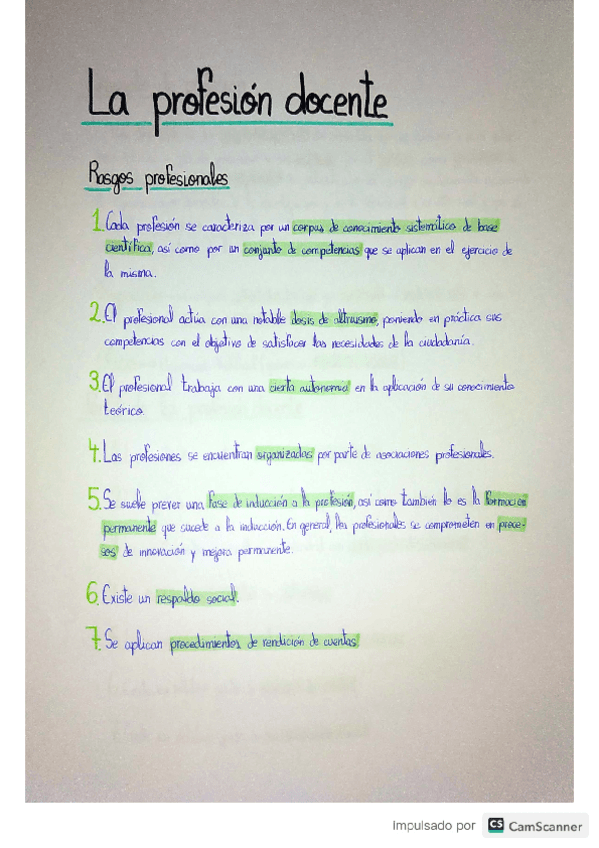 La profesión docente
Rasgos profesionales
1. Cada profesión se caracteriza por un corpus de conocimiento sistemático de base
científica, así como por un conjunto de competencias que se aplican en el ejercicio de
la misma.
2. El profesional actúa con una notable dosis de altruismo, poniendo en práctica sus
competencias con el objetivo de satisfacer las necesidades de la ciudadanía.
3. El profesional trabaja con una cierta autonomía en la aplicación de su conocimiento
teórico.
4. Las profesiones se encuentran organizadas por parte de asociaciones profesionales.
5. Se suele prever una fase de inducción a la profesión, así como también lo es la formación
permanente que sucede a la inducción. En general, los profesionales se comprometen en proce-
sos de innovación y mejora permanente.
6. Existe un respaldo social.
7. Se aplican procedimientos de rendición de cuentas.
Impulsado por CS CamScanner